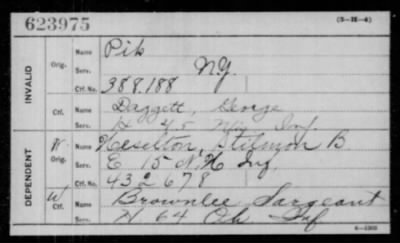 623975
(5-H-4)
INVALID
Orig.
Name
Pik
Serv.
N.Y.
Ctf. No.
388.188
Ctf.
Name
Daggett, George
Serv.
H 45 Inf.
DEPENDENT
W
Orig.
Name
Heselton, Stilmon B
Serv.
E 15 N H Inf.
Ctf. No.
432678
W
Ctf.
Name
Brownlee, Sargeant
Serv.
H 64 Oh Inf